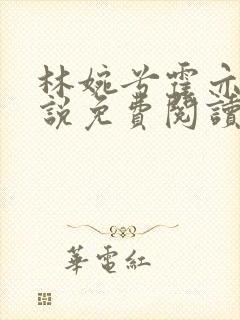 林婉兮霍亦
說免費閱讀
華電紅